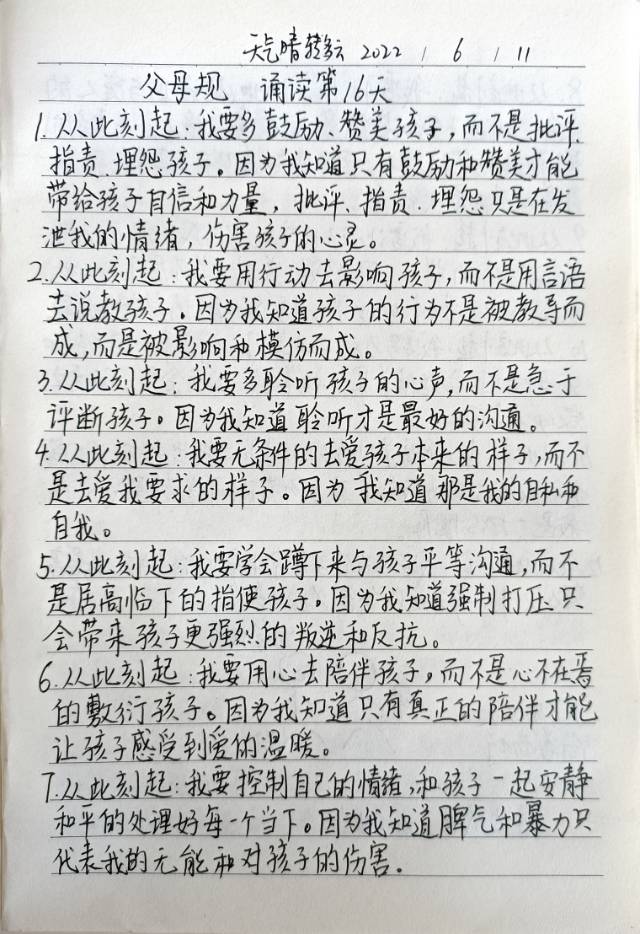 天气晴转多云 2022 / 6 / 11
父母规 诵读第16天
1.从此刻起:我要多鼓励、赞美孩子,而不是批评、
指责、埋怨孩子。因为我知道只有鼓励和赞美才能
带给孩子自信和力量,批评、指责、埋怨只是在发
泄我的情绪,伤害孩子的心灵。
2.从此刻起:我要用行动去影响孩子,而不是用言语
去说教孩子。因为我知道孩子的行为不是被教导而
成,而是被影响和模仿而成。
3.从此刻起:我要多聆听孩子的心声,而不是急于
评断孩子。因为我知道聆听才是最好的沟通。
4.从此刻起:我要无条件的去爱孩子本来的样子,而不
是去爱我要求的样子。因为我知道那是我的自私和
自我。
5.从此刻起:我要学会蹲下来与孩子平等沟通,而不
是居高临下的指使孩子。因为我知道强制打压只
会带来孩子更强烈的叛逆和反抗。
6.从此刻起:我要用心去陪伴孩子,而不是心不在焉
的敷衍孩子。因为我知道只有真正的陪伴才能
让孩子感受到爱的温暖。
7.从此刻起:我要控制自己的情绪,和孩子一起安静
和平的处理好每一个当下。因为我知道脾气和暴力只
代表我的无能和对孩子的伤害.